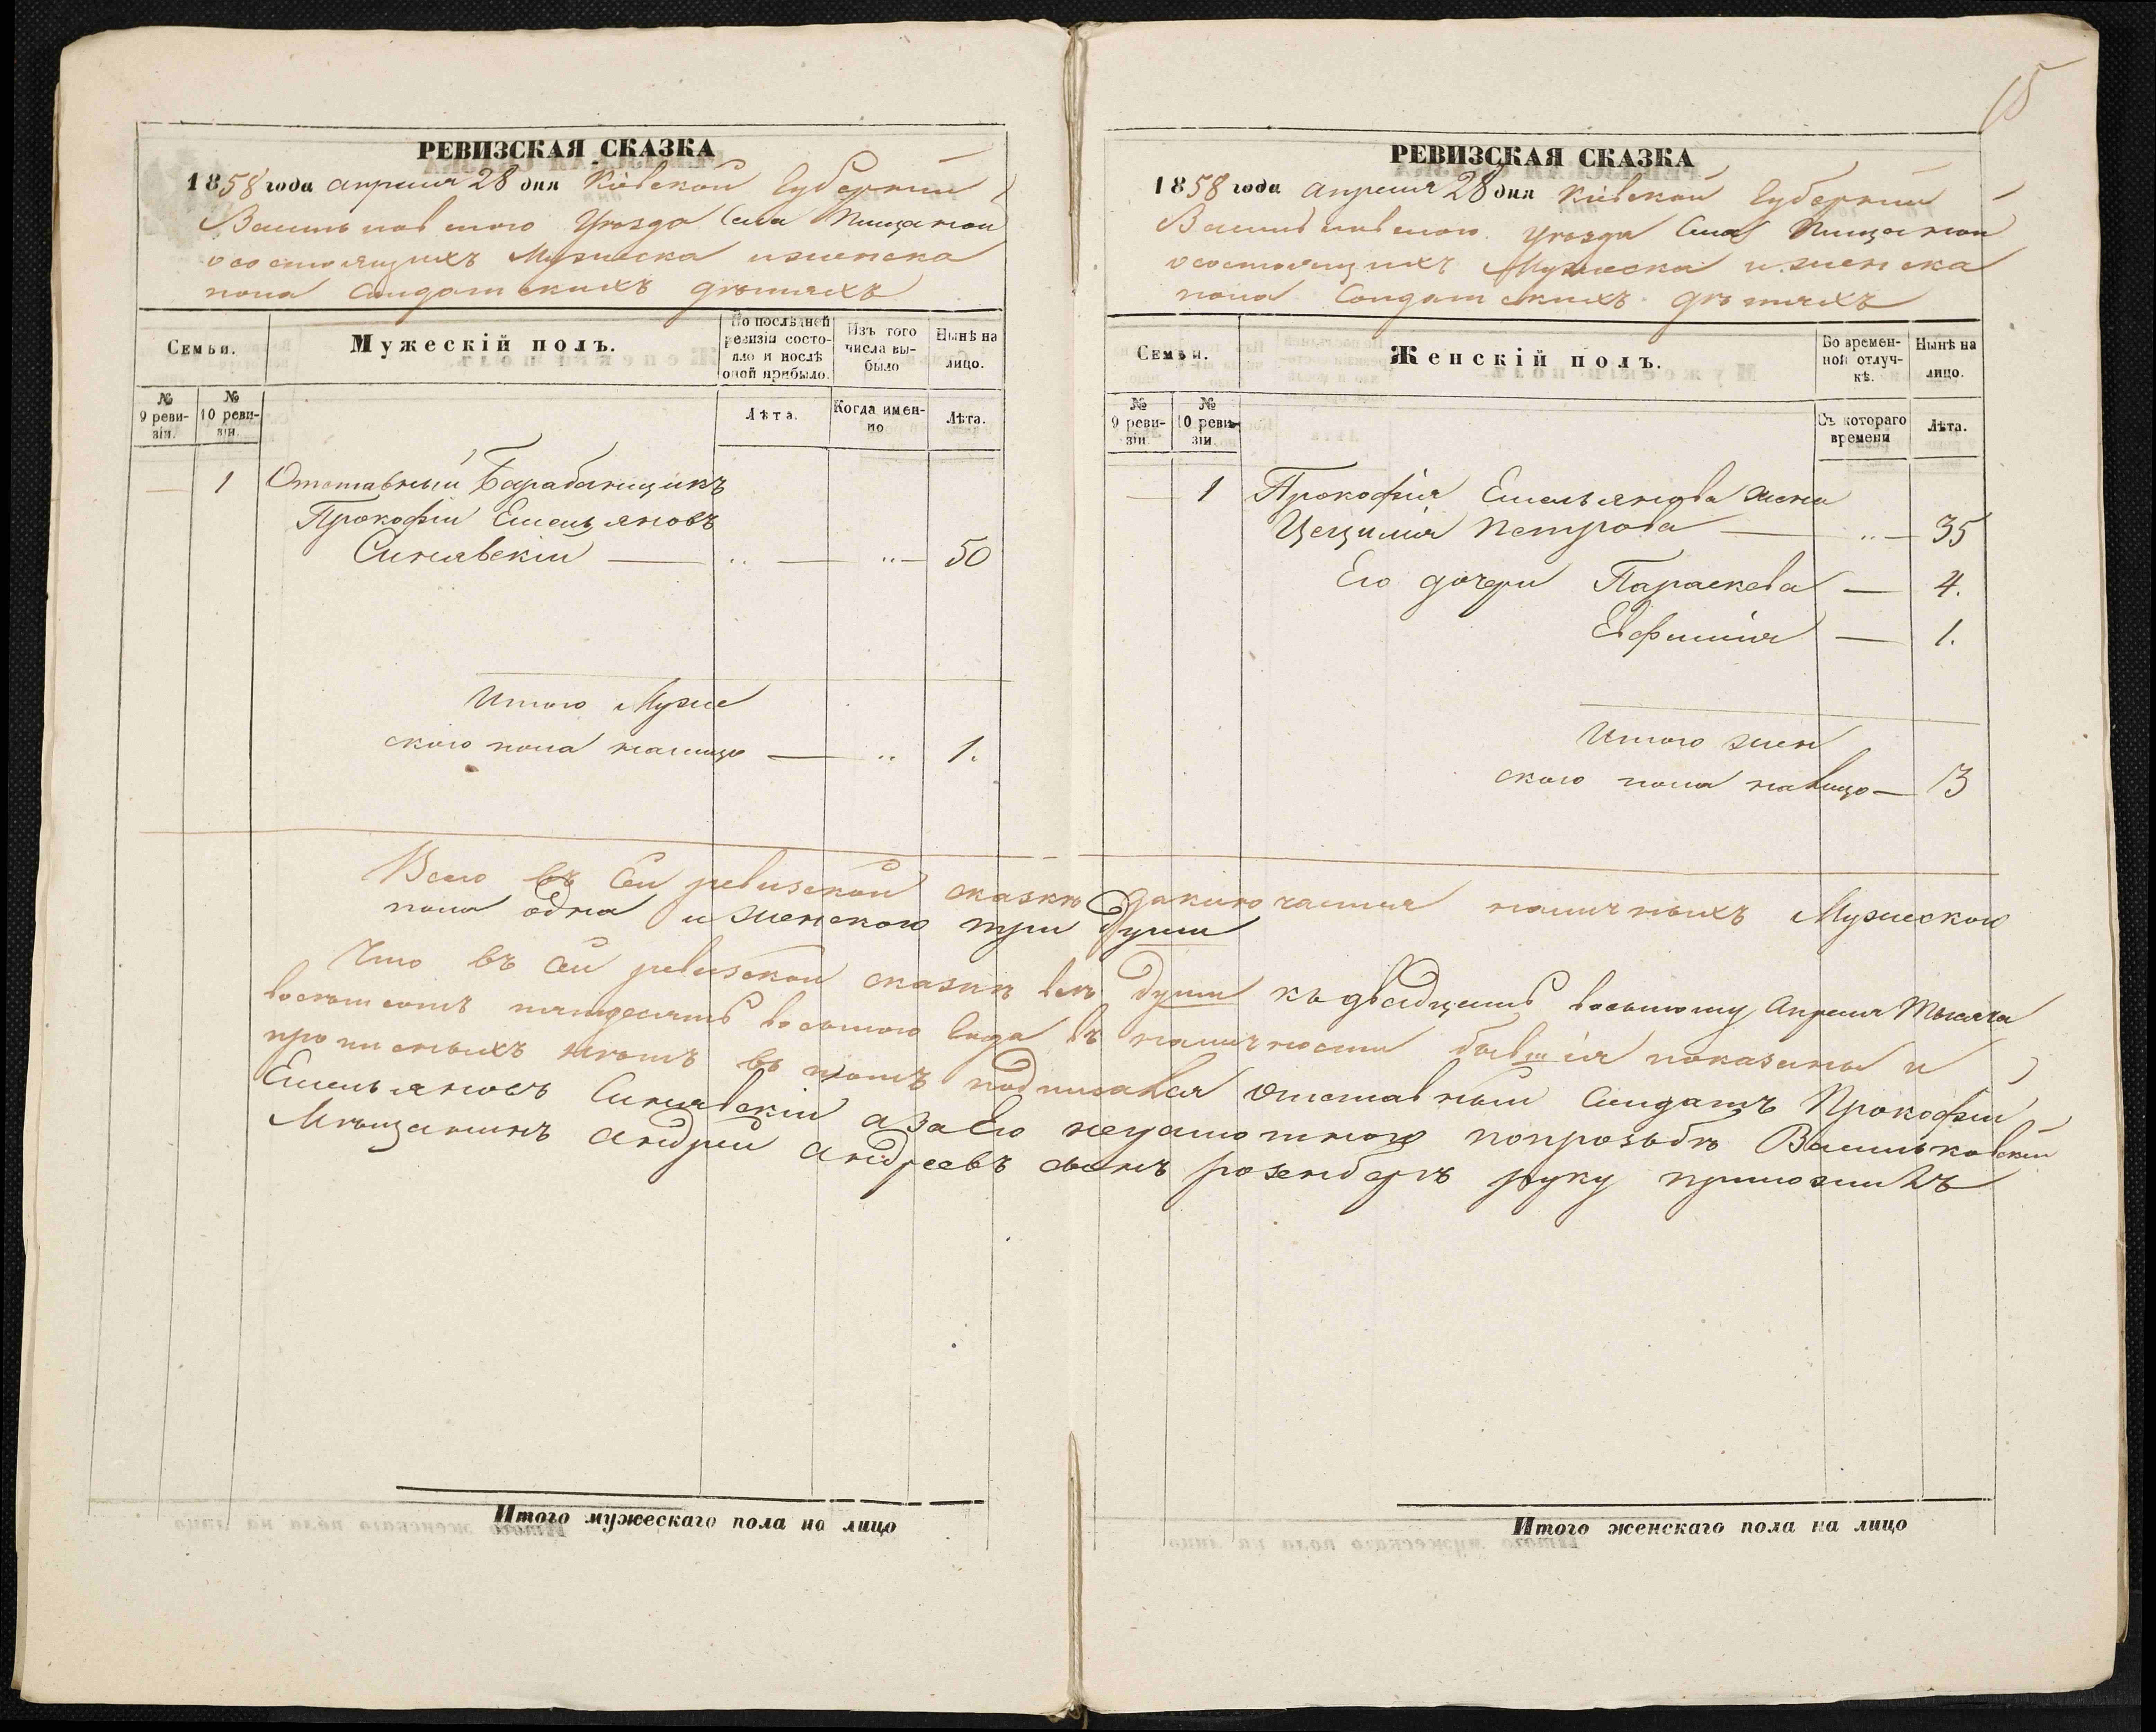 15
РЕВИЗСКАЯ СКАЗКА
1858 года апреля 28 дня Кіевской Губерніи
Васильковского Уезда Села Пищаной
о состоящихъ Мужеска и женска
пола Солдатскихъ дѣтяхъ
Семьи.
Мужескій полъ.
По послѣдней ревизіи состояло и послѣ оной прибыло.
Изъ того числа выбыло
Нынѣ на лицо.
№ 9 ревизіи.
№ 10 ревизіи.
Лѣта.
Когда именно
Лѣта.
1 Отставный Барабанщикъ
Прокофій Емельяновъ
Синявскій — .. — .. — 50
Итого Муже
ского пола налицо — .. 1.
РЕВИЗСКАЯ СКАЗКА
1858 года апреля 28 дня Кіевской Губерніи
Васильковского Уезда Села Пищаной
о состоящихъ Мужеска и женска
пола Солдатскихъ дѣтяхъ
Семьи.
Женскій полъ.
Во временной отлучкѣ.
Нынѣ на лицо.
№ 9 ревизіи.
№ 10 ревизіи.
Съ котораго времени
Лѣта.
1 Прокофія Емельянова жена
Цецилія Петрова — .. — 35
Его дочери Параскева — 4.
Евфимія — 1.
Итого жен
ского пола налицо — 3
Всего въ сей ревизской сказкѣ заключается наличныхъ Мужеского
пола одна и женского три души
Что въ сей ревизской сказкѣ всѣ души къ двадцать восьмому Апреля Тысяча
восемьсотъ пятдесятъ восьмого Года въ наличности бывшія показаны и
прописныхъ нѣтъ въ томъ подписался отставный Солдатъ Прокофій
Емельяновъ Синявскій а за Его неграмотного по прозьбѣ Васильковскій
Мѣщанинъ Андрей Андреевъ сынъ розенбергъ руку приложилъ
Итого мужескаго пола на лицо
Итого женскаго пола на лицо